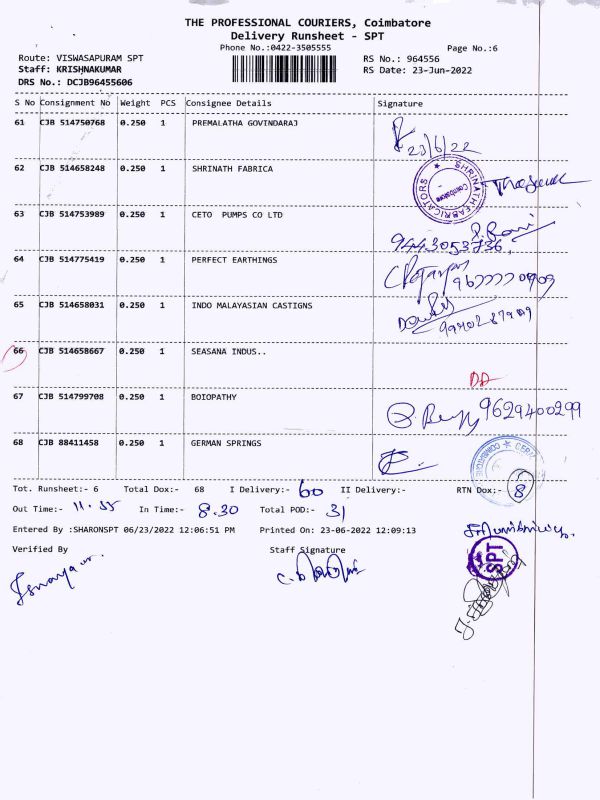 THE PROFESSIONAL COURIERS, Coimbatore
Delivery Runsheet - SPT
Phone No.:0422-3505555
Page No.:6
Route: VISWASAPURAM SPT
RS No.: 964556
Staff: KRISHNAKUMAR
RS Date: 23-Jun-2022
DRS No.: DCJB96455606
S No Consignment No Weight PCS Consignee Details Signature
61 CJB 514750768 0.250 1 PREMALATHA GOVINDARAJ
23/6/22
62 CJB 514658248 0.250 1 SHRINATH FABRICA
SHRINATH FABRICATORS
Coimbatore
63 CJB 514753989 0.250 1 CETO PUMPS CO LTD
9443053736
64 CJB 514775419 0.250 1 PERFECT EARTHINGS
65 CJB 514658031 0.250 1 INDO MALAYASIAN CASTIGNS
66 CJB 514658667 0.250 1 SEASANA INDUS..
DD
67 CJB 514799708 0.250 1 BOIOPATHY
9629400299
68 CJB 88411458 0.250 1 GERMAN SPRINGS
Tot. Runsheet:- 6 Total Dox:- 68 I Delivery:- 60 II Delivery:- RTN Dox:- 8
Out Time:- 11.55 In Time:- 8.30 Total POD:- 31
Entered By :SHARONSPT 06/23/2022 12:06:51 PM Printed On: 23-06-2022 12:09:13
Verified By Staff Signature
SPT